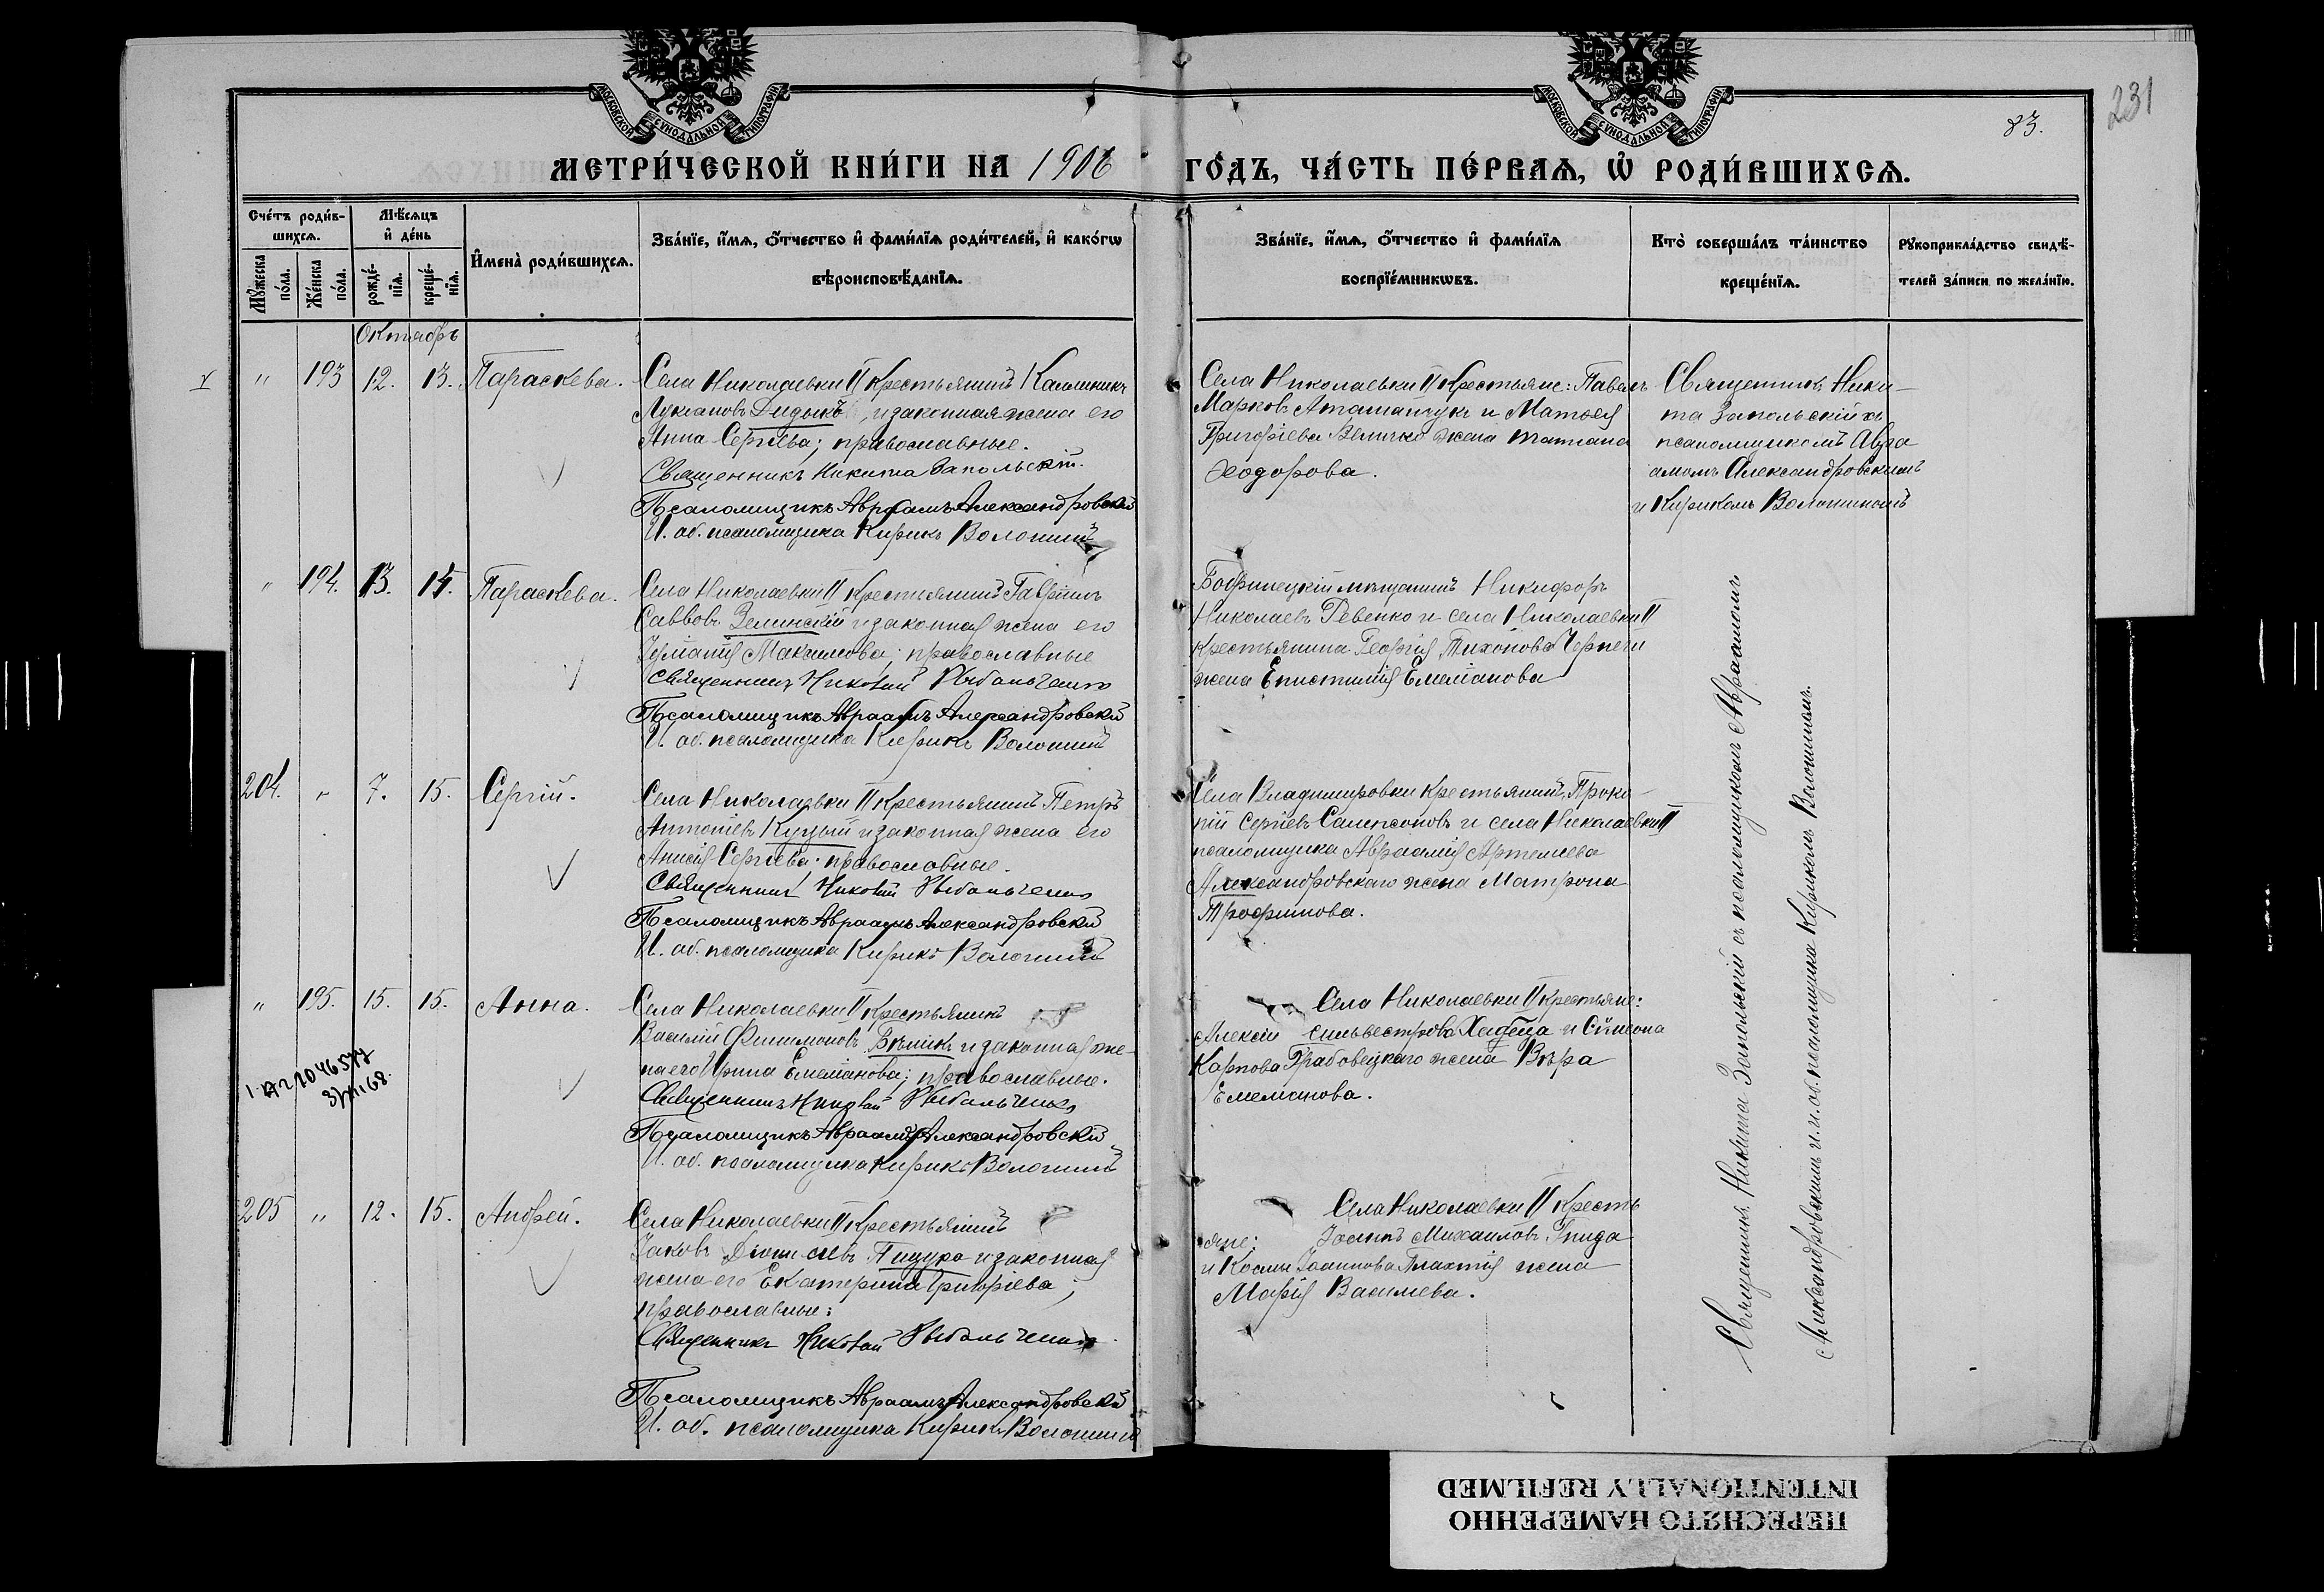 МОСКОВСКОЙ СѴНОДАЛЬНОЙ ТИПОГРАФІИ
МОСКОВСКОЙ СѴНОДАЛЬНОЙ ТИПОГРАФІИ
231
83.
МЕТРИ́ЧЕСКОЙ КНИ́ГИ НА 1906 ГО́ДЪ, ЧА́СТЬ ПЕ́РВАѦ, Ѡ҆ РОДИ́ВШИХСѦ.
Сче́тъ роди́в-
шихсѧ.
Мꙋ́жеска по́ла.
Же́нска по́ла.
Мѣ́сѧцъ
и҆ де́нь
рожде́-нїѧ.
креще́-нїѧ.
И҆мена̀ роди́вшихсѧ.
Зва́нїе, и҆́мѧ, ѻ҆́тчество и҆ фами́лїѧ роди́телей, и҆ како́гѡ
вѣроисповѣ́данїѧ.
Зва́нїе, и҆́мѧ, ѻ҆́тчество и҆ фами́лїѧ
воспрїе́мникѡвъ.
Кто̀ соверша́лъ та́инство
креще́нїѧ.
Рꙋкоприкла́дство свидѣ́-
телей за́писи по жела́нїю.
Октябрь
" 193 12. 13. Параскева.
Села Николаевки II крестьянинъ Калинникъ
Лукіановъ Дидыкъ, и законная жена его
Анна Сергіева; православные.
Священникъ Никита Запольскій.
Псаломщикъ Авраамъ Александровскій
И. об. псаломщика Кирикъ Волошинъ
Села Николаевки II крестьяне: Павелъ
Марковъ Аташанчукъ и Матѳея
Григоріева Величко жена Татіана
Ѳеодорова.
Священникъ Ники-
та Запольскій съ
псаломщикомъ Авра
амомъ Александровскимъ
и Кирикомъ Волошинымъ
" 194. 13. 14. Параскева.
Села Николаевки II крестьянинъ Гавріилъ
Саввовъ Зелинскій и законная жена его
Іуліанія Максимова; православные
Священникъ Николай Рыбальченко
Псаломщикъ Авраамъ Александровскій
И. об. псаломщика Кирикъ Волошинъ
Бобринецкій мѣщанинъ Никифоръ
Николаевъ Ревенко и села Николаевки II
крестьянина Георгія Тихонова Черпеги
жена Епистимія Емеліанова
204. " 7. 15. Сергій.
Села Николаевки II крестьянинъ Петръ
Антоніевъ Куцый и законная жена его
Анисія Сергіева; православные.
Священникъ Николай Рыбальченко
Псаломщикъ Авраамъ Александровскій
И. об. псаломщика Кирикъ Волошинъ
Села Владимировки крестьянинъ Проко-
пій Сергіевъ Сампсоновъ и села Николаевки II
псаломщика Авраамія Артемиева
Александровскаго жена Матрона
Трофимова.
" 195. 15. 15. Анна.
Села Николаевки II крестьянинъ
Василій Филимоновъ Бѣликъ и законная же-
на его Ирина Емеліанова; православные.
Священникъ Николай Рыбальченко
Псаломщикъ Авраамъ Александровскій
И. об. псаломщика Кирикъ Волошинъ
Села Николаевки II крестьяне:
Алексій Сильвестрова и Симеона
Карпова Грабовецкаго жена Вѣра
Емеліанова.
205 " 12. 15. Андрей.
Села Николаевки II крестьянинъ
Іаковъ Діонисіевъ Пицура и законная
жена его Екатерина Григоріева;
православные:
Священникъ Николай Рыбальченко
Псаломщикъ Авраамъ Александровскій
И. об. псаломщика Кирикъ Волошинъ
Села Николаевки II кресть
яне: Іоаннъ Михаиловъ Гнида
и Космы Іоаннова жена
Марія Василиева.
Священникъ Никита Запольскій съ псаломщикомъ Авраамомъ
Александровскимъ и и. об. псаломщика Кирикомъ Волошинымъ.
ПЕРЕСНЯТО НАМЕРЕННО
INTENTIONALLY REFILMED